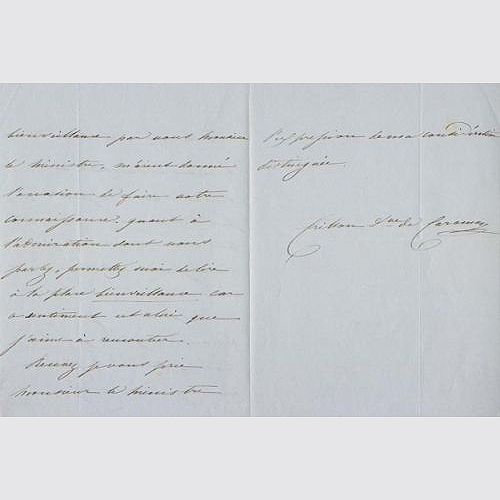 bienveillance par vous monsieur
le ministre, m'eut donné
l'occasion de faire votre
connaissance. quant à
l'admiration dont vous
parlez, permettez moi de lire
à la place bienveillance car
ce sentiment est celui que
j'aime à rencontrer.
Recevez je vous prie
monsieur le ministre
l'expression de ma considération
distinguée.
Crillon Dsse de Caraman